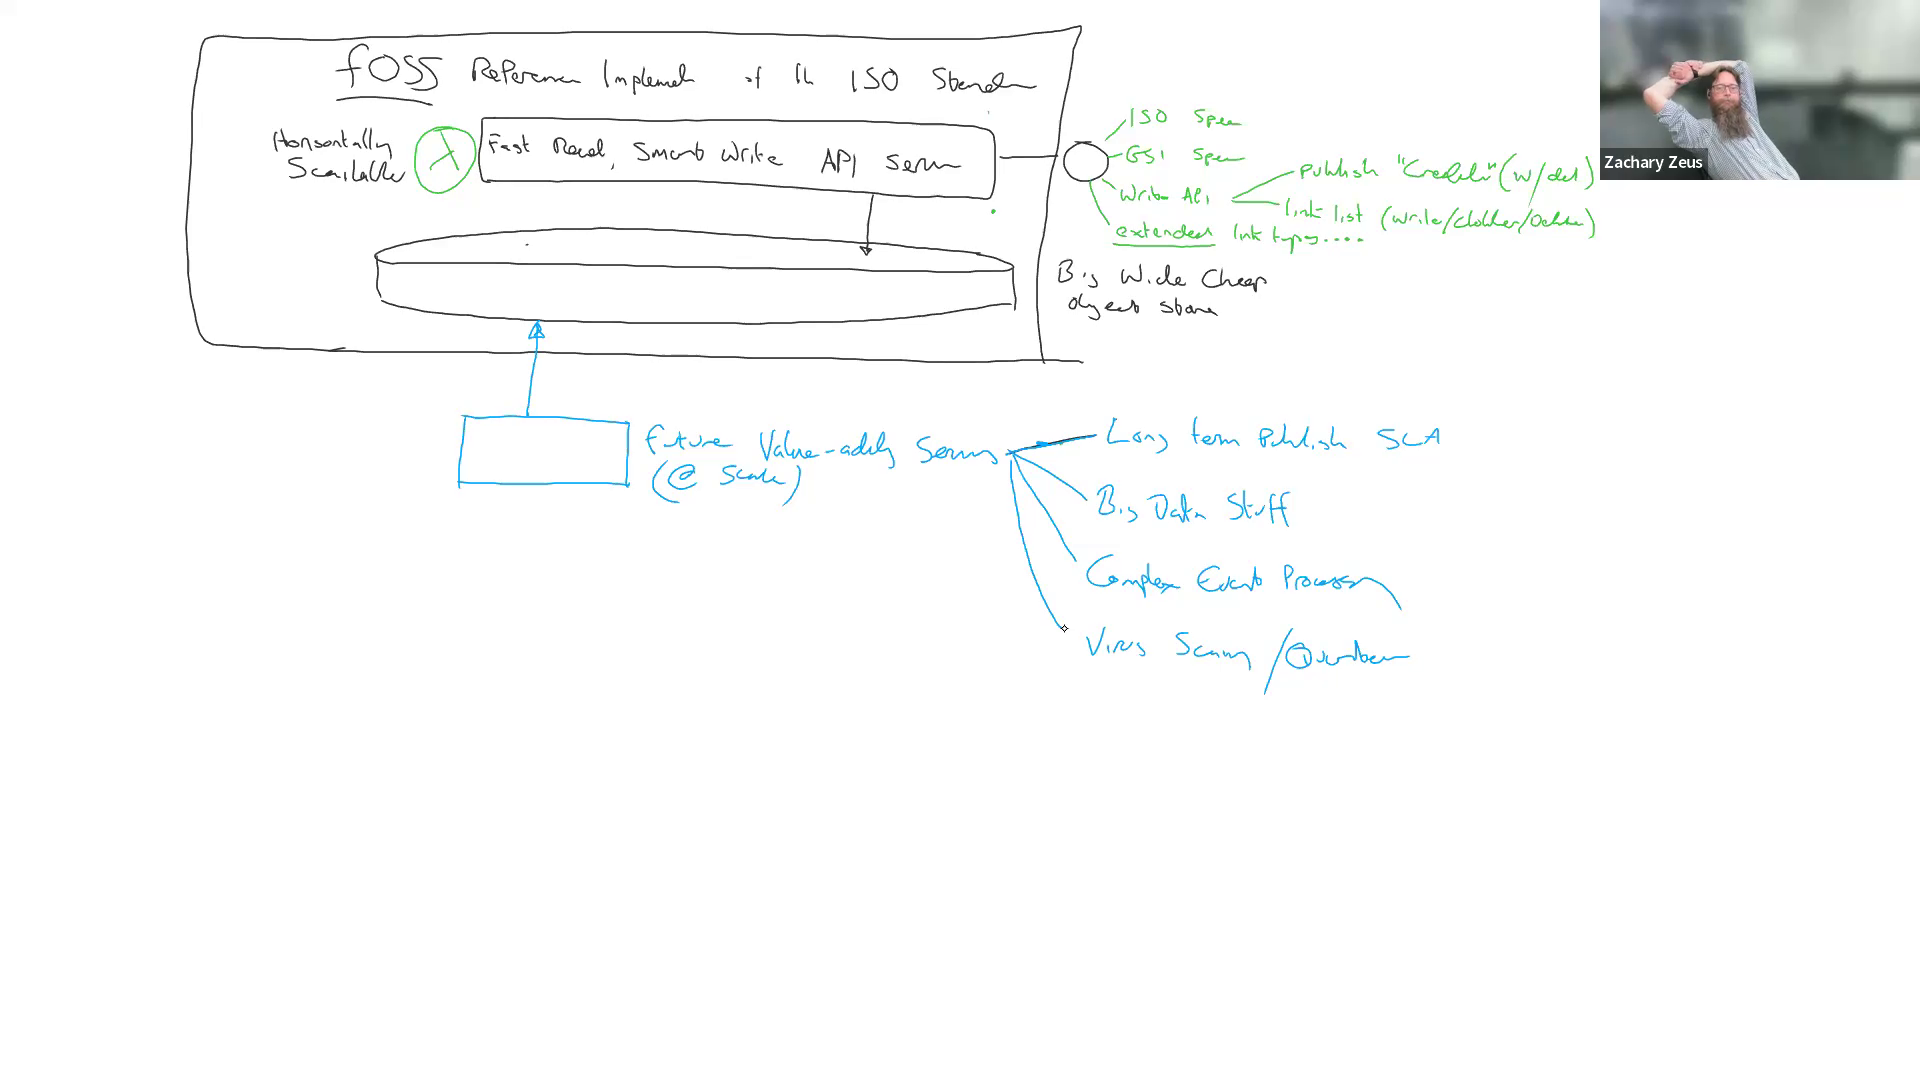 FOSS Reference Implement of th ISO Standa
Horsontally
Scailable
λ
Fast Read, Smart Write API Serve
ISO Spec
GS1 Spec
Write API
extended link types....
Publish "Credential" (w/del)
link list (write/clobber/
Big Wide Cheap
object store
Future Value-adding Services
(@ Scale)
Long term Publish SLA
Big Data Stuff
Complex Event Process
Virus Scanning / Quarantine
Zachary Zeus